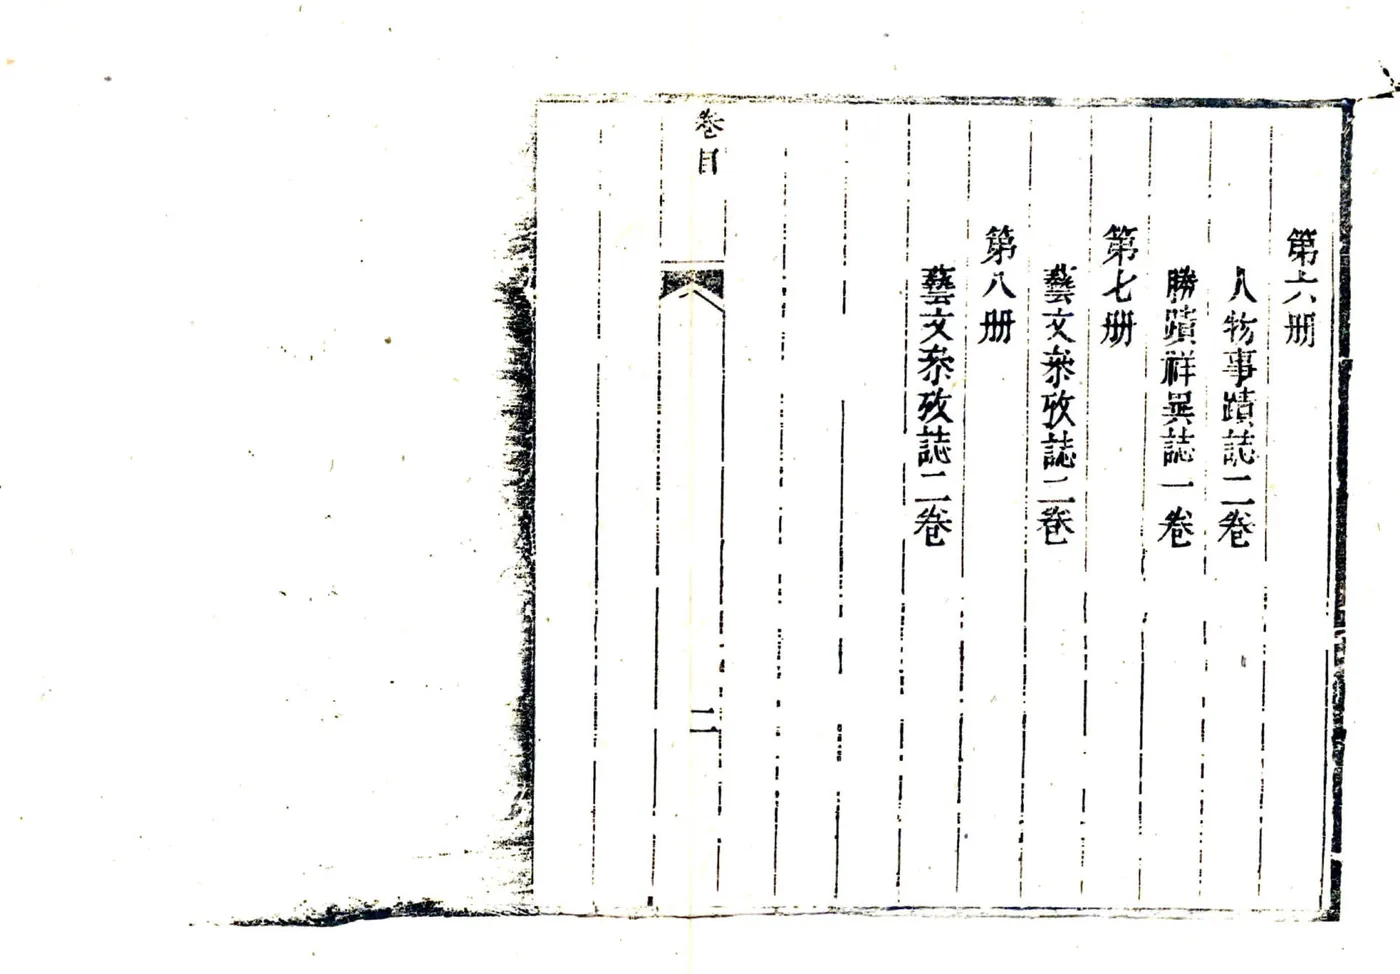 第六册
人物事蹟誌二卷
勝蹟祥異誌一卷
第七册
藝文叅攷誌二卷
第八册
藝文叅攷誌二卷
卷目
二